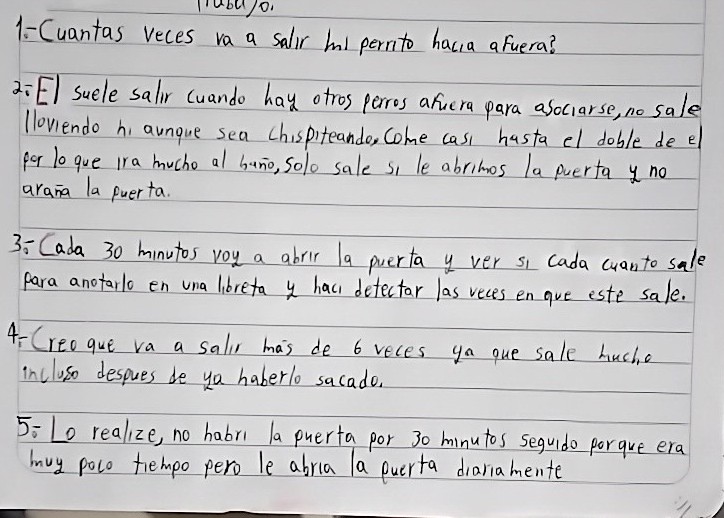 Trabajo.
1.- Cuantas veces va a salir mi perrito hacia afuera?
2.- El suele salir cuando hay otros perros afuera para asociarse, no sale
lloviendo ni aunque sea chispiteando, Come casi hasta el doble de el
por lo que ira mucho al baño, solo sale si le abrimos la puerta y no
araña la puerta.
3.- Cada 30 minutos voy a abrir la puerta y ver si cada cuanto sale
para anotarlo en una libreta y haci detectar las veces en que este sale.
4.- Creo que va a salir más de 6 veces ya que sale mucho
incluso despues de ya haberlo sacado.
5.- Lo realize, no habri la puerta por 30 minutos seguido porque era
muy poco tiempo pero le abria la puerta diariamente